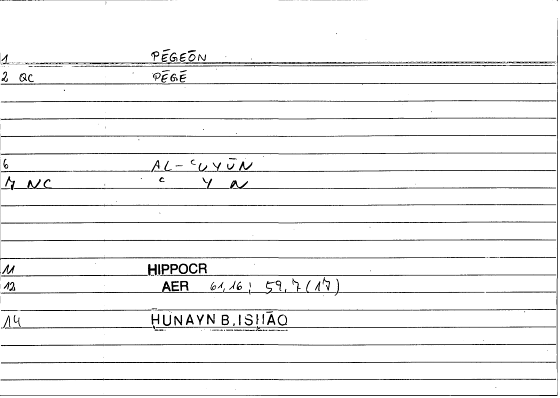 1 PĒGEŌN
2 QC PĒGĒ
6 AL-ʿUYŪN
7 NC ʿ Y N
11 HIPPOCR
12 AER 61,16; 59,7(17)
14 HUNAYN B. ISHĀQ